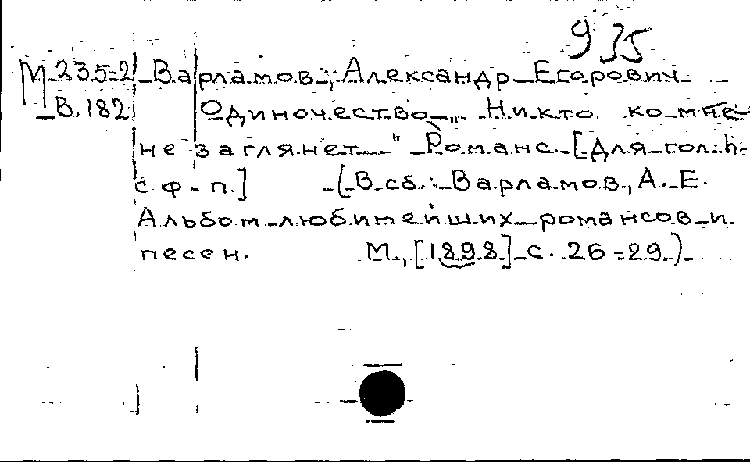 935
М 235-2 Варламов, Александр Егорович
В.182 Одиночество „Никто ко мне
не заглянет" Романс. [Для гол. h-
с ф-п.] (В сб.: Варламов, А. Е.
Альбом любимейших романсов и
песен. М., [1898] с. 26-29.)